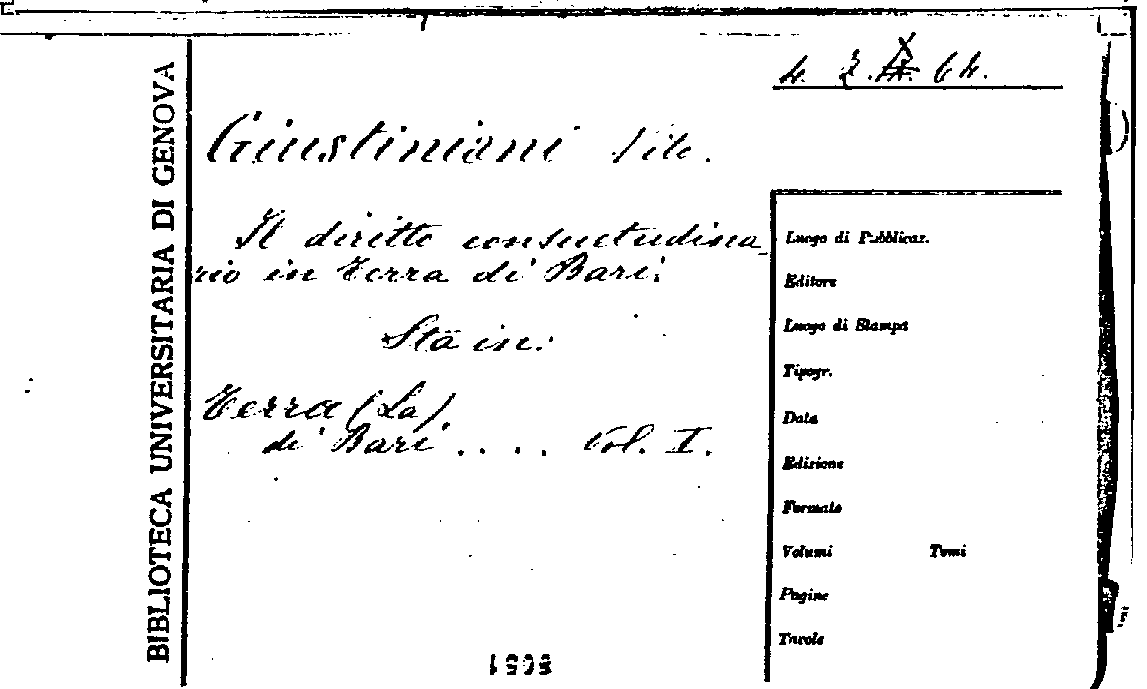 BIBLIOTECA UNIVERSITARIA DI GENOVA
4. Z. X. 64.
Giustiniani Vito.
Il diritto consuetudina_
rio in Terra di Bari.
Sta in:
Terra (La)
di Bari . . . . Vol. I.
Luogo di Pubblicaz.
Editore
Luogo di Stampa
Tipogr.
Data
Edizione
Formato
Volumi Tomi
Pagine
Tavole